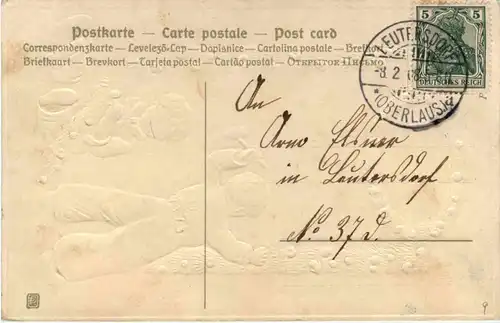 Postkarte – Carte postale – Post card
Correspondenzkarte – Levelező-Lap – Dopisnice – Cartolina postale – Brefkort
Briefkaart – Brevkort – Tarjeta postal – Cartão postal –
5 5
DEUTSCHES REICH
LEUTERSDORF
-8.2.08
*(OBERLAUS.)*
An
Arno Elsner
in Leutersdorf
No. 37 d.